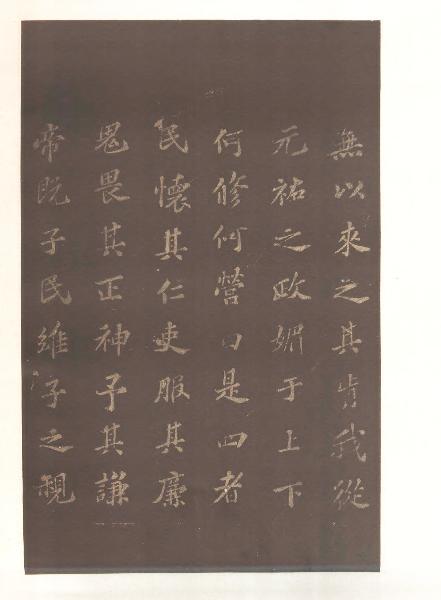 無以來之其肯我從
元祐之政媚于上下
何修何營曰是四者
民懷其仁吏服其廉
鬼畏其正神予其謙
帝既子民維子之視